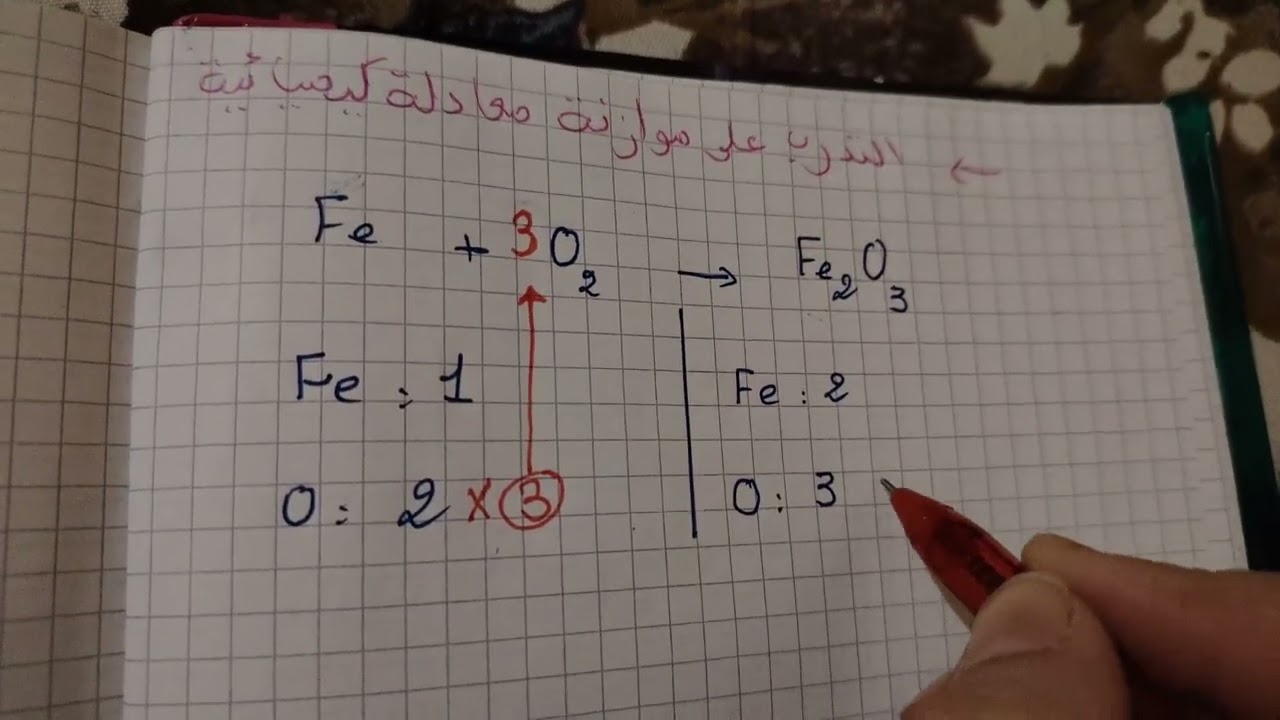 ← التدرب على موازنة معادلة كيميائية
Fe + 3O₂ → Fe₂O₃
Fe : 1 Fe : 2
O : 2 × 3 O : 3